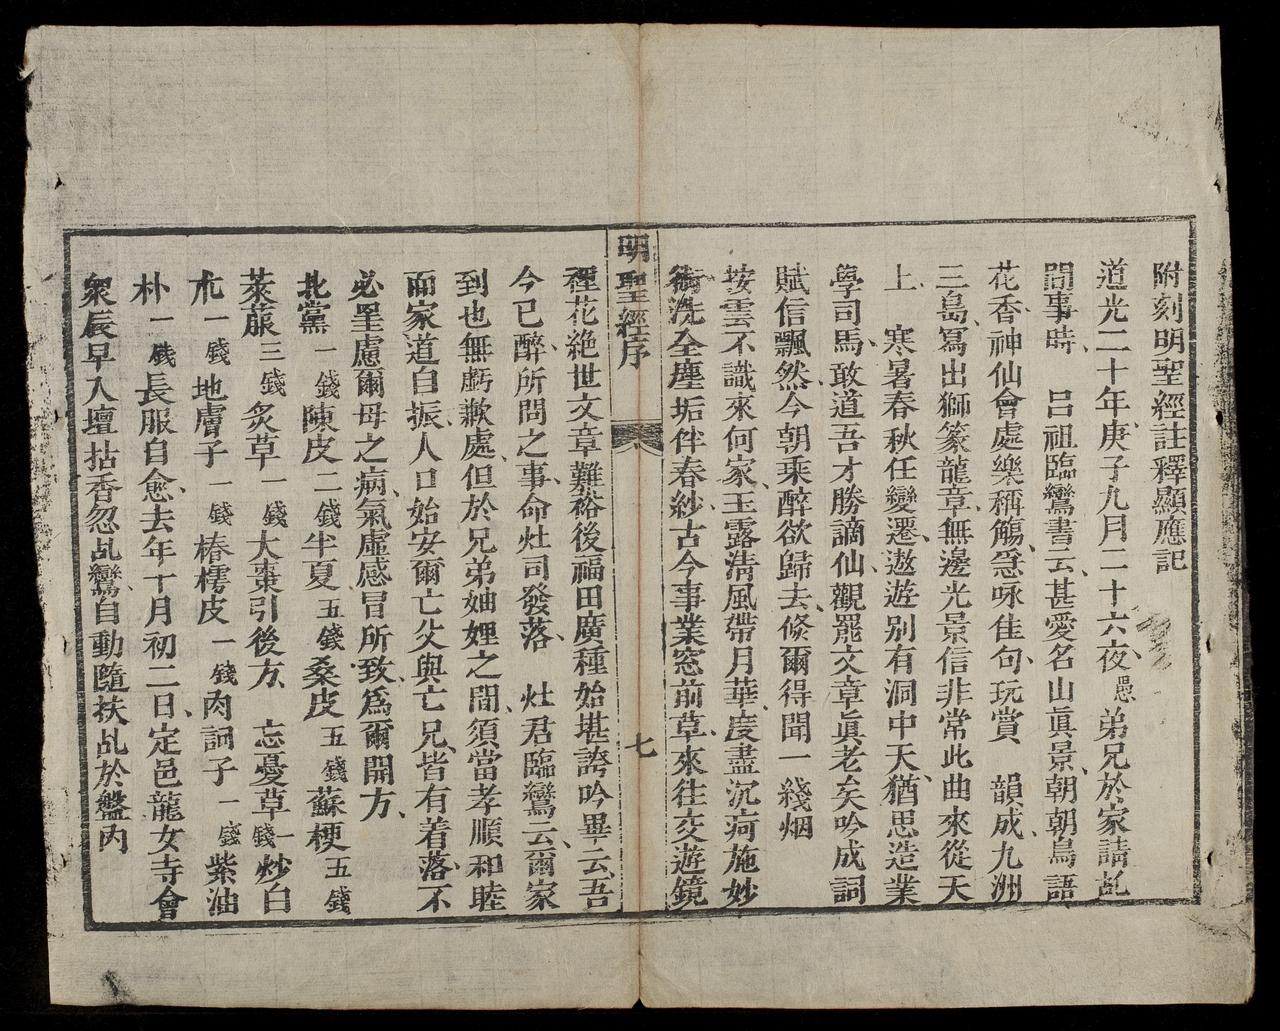 附刻明聖經註釋顯應記
道光二十年庚子九月二十六夜愚弟兄於家請乩
問事時 呂祖臨鸞書云甚愛名山眞景朝朝鳥語
花香神仙會處樂稱觴爲咏佳句玩賞 韻成九洲
三島寫出獅篆龍章無邊光景信非常此曲來從天
上 寒暑春秋任變遷遨遊別有洞中天猶思造業
學司馬敢道吾才勝謫仙觀罷文章眞老矣吟成詞
賦信飄然今朝乘醉欲歸去倏爾得聞一綫烟
按雲不識來何家玉露淸風帶月華度盡沉疴施妙
術洗全塵垢伴春紗古今事業窓前草來往交遊鏡
明聖經序
七
裡花絶世文章難裕後福田廣種始堪誇吟畢云吾
今已醉所問之事命灶司發落 灶君臨鸞云爾家
到也無虧歉處但於兄弟妯娌之間須當孝順和睦
而家道自振人口始安爾亡父與亡兄皆有着落不
必罣慮爾母之病氣虛感冒所致爲爾開方
北黨一錢陳皮二錢半夏五錢桑皮五錢蘇梗五錢
萊菔三錢炙草一錢大棗引後方 忘憂草一錢炒白
朮一錢地膚子一錢椿樗皮一錢肉訶子一錢紫油
朴一錢長服自愈去年十月初二日定邑龍女寺會
衆辰早入壇拈香忽乩鸞自動隨扶乩於盤內